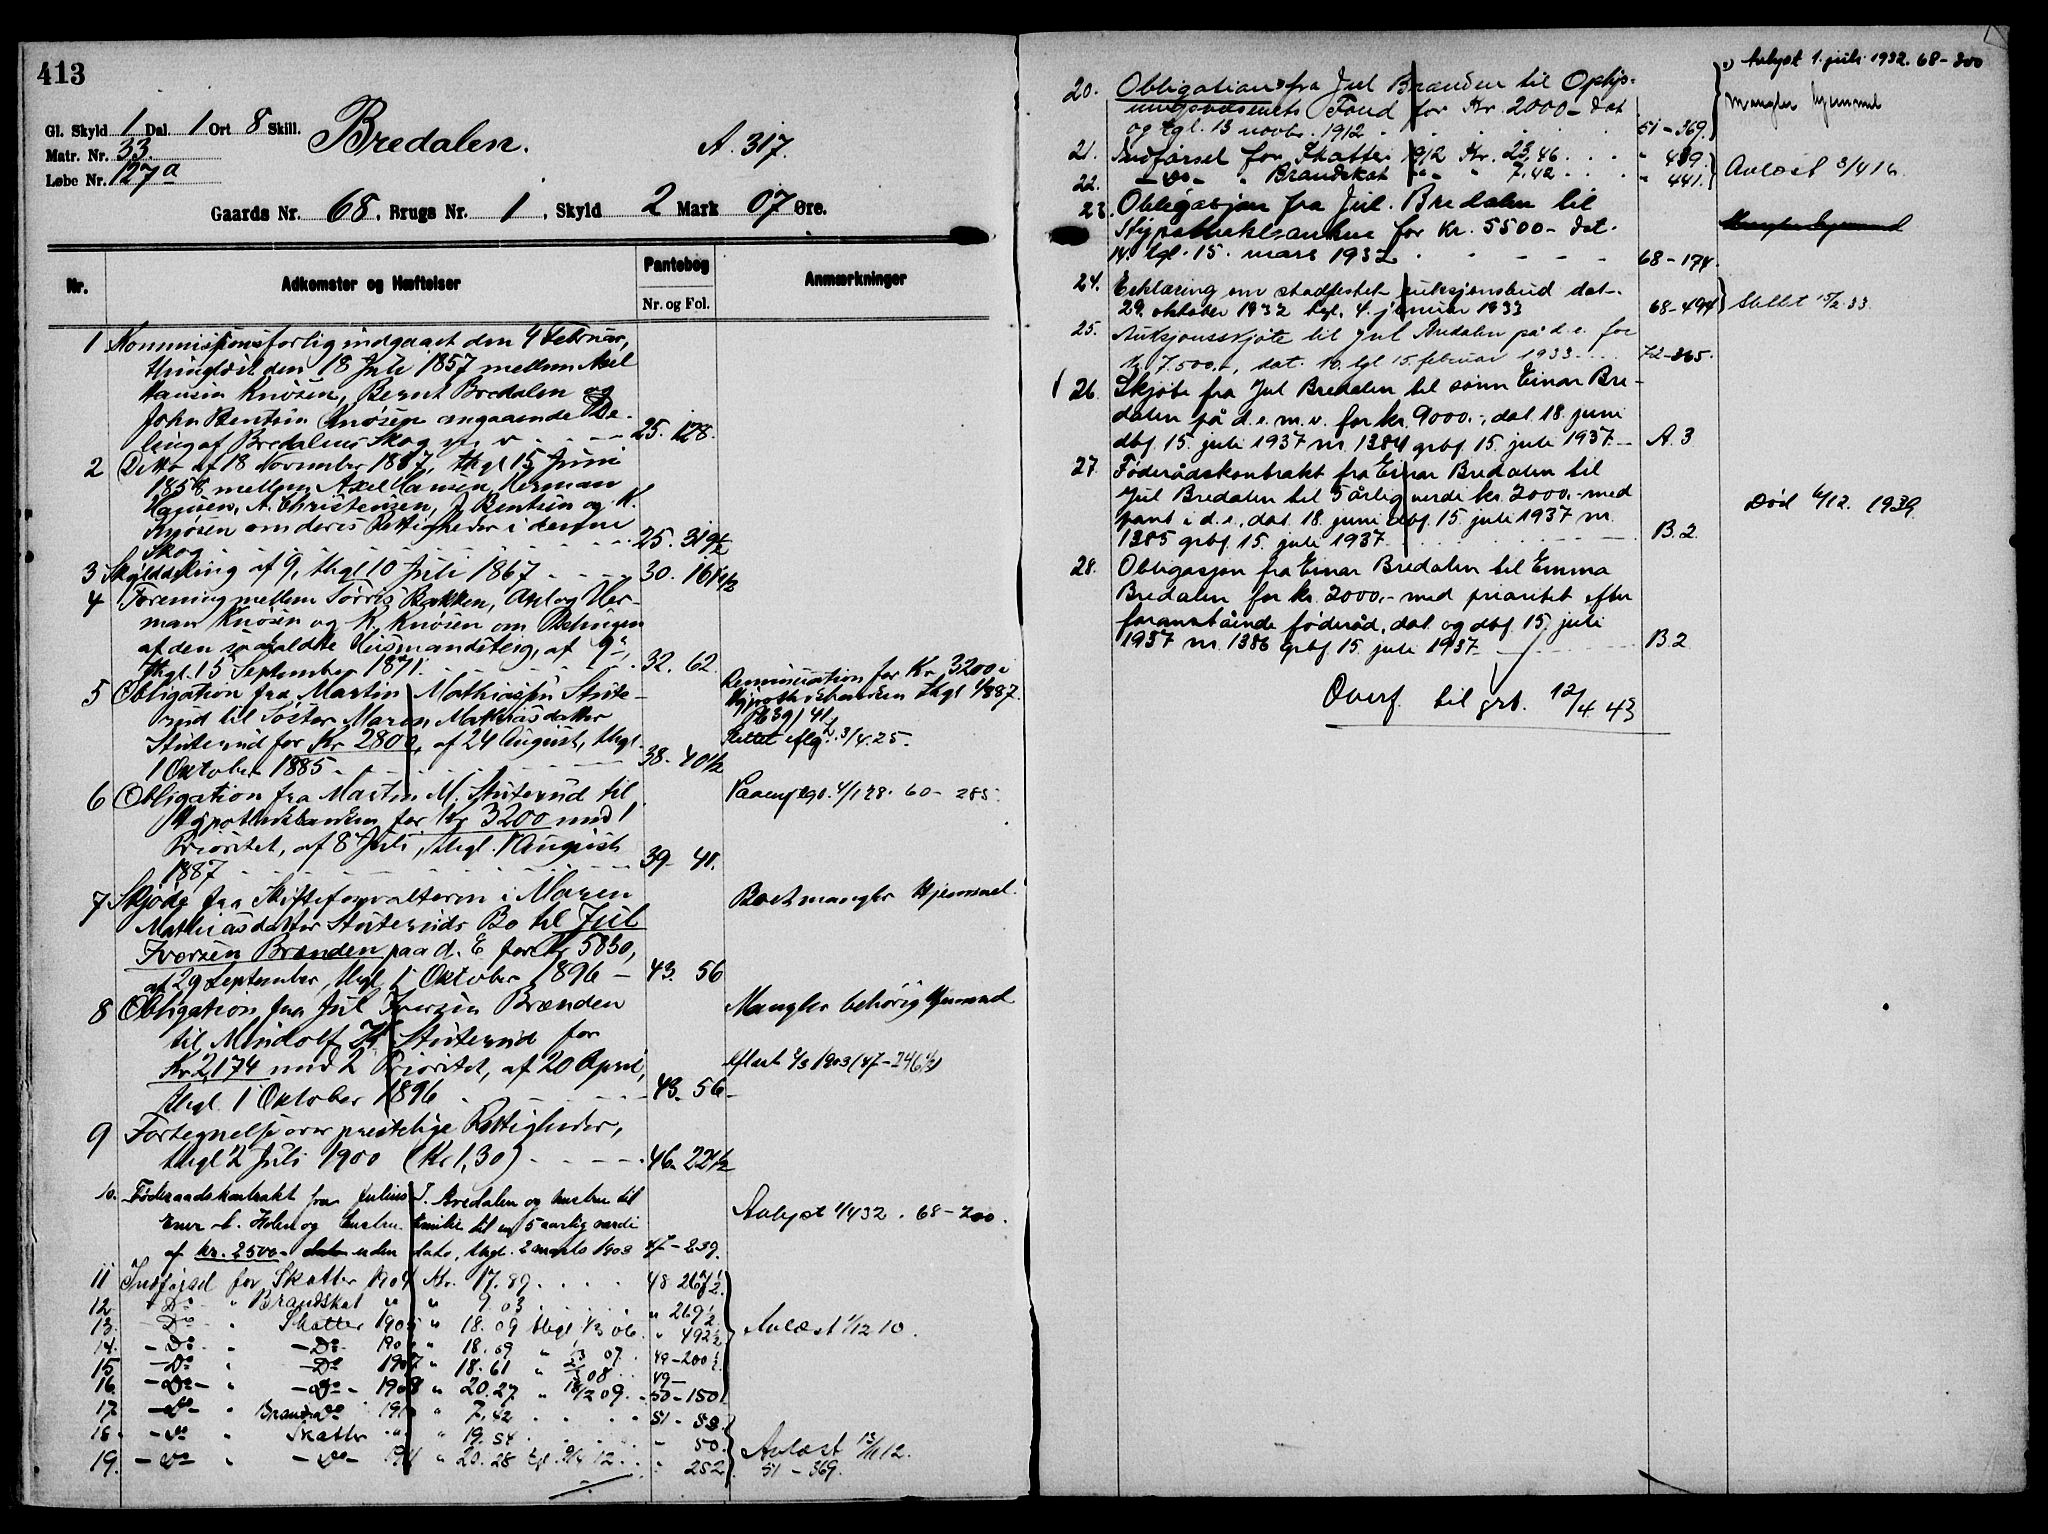 413
Gl. Skyld 1 Dal. 1 Ort 8 Skill.
Matr. Nr. 33.
Løbe Nr. 127a
Bredalen. A. 317.
Gaards Nr. 68, Brugs Nr. 1, Skyld 2 Mark 07 Øre.
Nr. Adkomster og Hæftelser Pantebog Anmærkninger
Nr. og Fol.
1 Kommissionsforlig indgaaet den 4 Februar,
thinglæst den 18 Juli 1857 mellem Axel
Hansen Knøsen, Bernt Bredalen og
John Bentsen Knøsen angaaende De-
ling af Bredalens Skog m. v. 25. 128.
2 Ditto af 18 November 1857, thgl 15 Juni
1858, mellem Axel Hansen, Herman
Hansen, A. Christensen, J Bentsen og K.
Knøsen om deres Rettigheder i denne
Skog 25. 319½
3 Skylddeling af 9, thgl 10 Juli 1867 30. 161½
4 Forening mellem Torris Bakken, Axel og Her-
man Knøsen og K. Knøsen om
af den saakaldte Husmandsteig, af 9,
thgl. 15 September 1871. 32. 62.
5 Obligation fra Martin Mathiassen Stute-
rud til Søster Maren Mathiasdatter
Stuterud for Kr 2800, af 24 August, thgl.
1 Oktober 1885 38. 40½
Renunciation for Kr. 3200 i
Hypothekbanken thgl 1/8 87.
Pb 39/41
Slettet eflg. 3/4 25.
6 Obligation fra Martin M. Stuterud til
Hypothekbanken for Kr 3200 med 1
Prioritet, af 8 Juli, thgl. 1 August
1887 39- 41.
60-285.
7 Skjøde fra Skifteforvalteren i Maren
Mathiasdatter Stuteruds Bo til Jul
Iversen Brænden paa d. E for Kr 5050,
af 29 September, thgl 1 Oktober 1896 - 43. 56
Boet mangler Hjemmel.
8 Obligation fra Jul Iversen Brænden
til Mindolf H Stuterud for
Kr 2,174 med 2 Prioritet, af 20 April,
thgl. 1 Oktober 1896 43. 56
Mangler behørig Hjemmel
Aflæst 2/3 1903 (47-246½)
9 Fortegnelse over præstelige Rettigheder,
thgl 2 Juli 1900 (Kr 1,30) 46. 221½
10. Føderaadskontrakt fra Julius I. Bredalen og hustru til
Ener Holen og hustru Emilie til en 5 aarlig værdi
af kr. 2500 uden dato, thgl. 2 marts 1903 47-239.
Avlyst 1/4 32. 68-200.
11 Indførsel for Skatter 1904 Kr. 17.89. 48-267½
12. Do " Brandskat " " 9.03 " 269½
13. Do " Skatter 1905 " 18.09 thgl 1/3 06. " 492½
14. - Do " - Do 1906 " 18.09 " 07. 49-200½
15 - Do " - Do 1907 " 18.61 " 08 49-
16. - Do - " - Do - 1908 " 20.27 " 18/2 09. 50-150
Avlæst 1/12 10.
17. - Do - " Brandsk 1910 " 7.42 51-53.
18. - Do " Skatter " " 19.54 - 50.
19. - Do " - Do - 1911 " 20.28 tgl. 9/4 12. " 252.
Avlæst 13/11 12.
51-369.
20. Obligation fra Jul Brænden til Ophjs-
Fond for Kr. 2000- dat
og tgl. 13 novbr. 1912 51-369.
1) Avlyst 1. juli 1932. 68-200
mangler hjemmel
21. Indførsel for Skatter 1912 Kr. 23.46. " 439.
22. - Do - " Brandskat " " 7.42 " 441.
Avlæst 3/4 16.
23. Obligasjon fra Jul. Bredalen til
Hypotekbanken for kr. 5500- dat.
14. tgl. 15. mars 1932 68-174.
Mangler hjemmel
24. Erklæring om stadfestet auksjonsbud dat.
29. oktober 1932 tgl. 4. januar 1933 68-494
Slettet 15/2 33
25. Auksjonsskjøte til Jul Bredalen på d. e. for
kr. 7.500.-, dat. 10. tgl 15. februar 1933 72-365.
26. Skjøte fra Jul Bredalen til sønn Einar Bre-
dalen på d. e. m. v. for kr. 9000.-, dat. 18. juni
dbf. 15. juli 1937 nr. 1384 grbf 15. juli 1937 A. 3
27. Føderådskontrakt fra Einar Bredalen til
Jul Bredalen til 5 årlig verdi kr. 2000.- med
pant i d. e., dat. 18. juni dbf. 15. juli 1937 nr.
1385 grbf. 15. juli 1937. B. 2.
Død 6/12. 1939.
28. Obligasjon fra Einar Bredalen til Emma
Bredalen for kr. 2000.- med prioritet efter
foranstående føderåd, dat. og dbf. 15. juli
1937 nr. 1386 grbf. 15. juli 1937 B. 2
Overf. til grb. 12/4 43